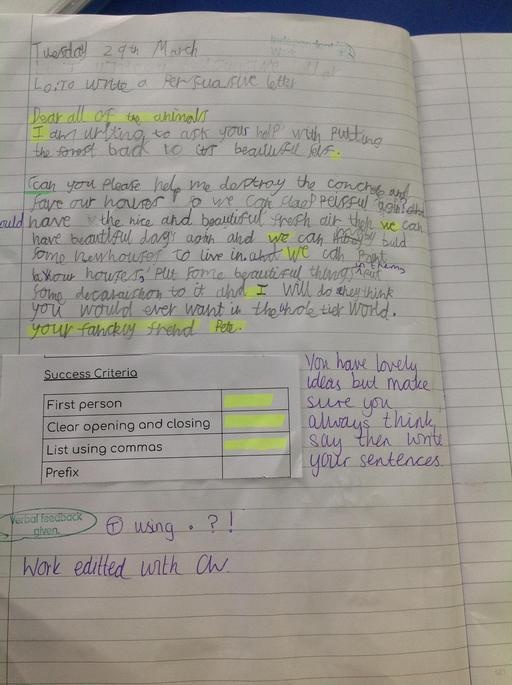 Tuesday 29th March
L.O: To write a Persuasive letter
Dear all of the animals
I am writing to ask your help with putting
the forest back to its beautiful self.
can you please help me destroy the concrete and
save our houses so we can again?
ould have the nice and beautiful fresh air then we can
have beautiful days again and we can build
some new houses to live in and we can paint
our houses, put some beautiful things in them
some to it and I will do think
you would ever want in the whole world.
your frend Pete.
Success Criteria
First person
Clear opening and closing
List using commas
Prefix
You have lovely
ideas but make
sure you
always think,
say then write
your sentences.
Verbal feedback
given.
T using . ? !
Work editted with CW.